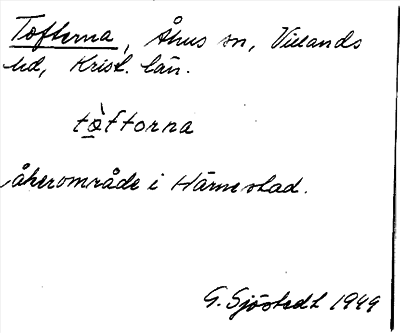 Tofterna, Åhus sn, Villands
hd, Krist. län.
to̱̊̀ftorna
åkerområde i Härnestad.
G. Sjöstedt 1949